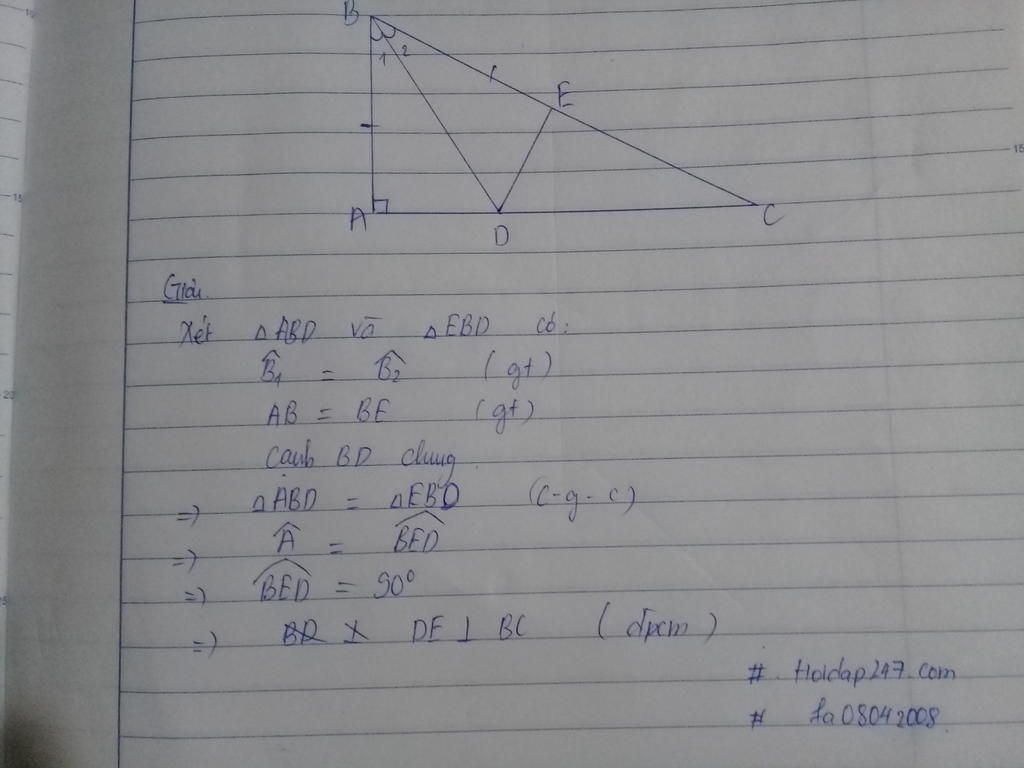 B
1 2
E
A
D
C
Giải
Xét △ABD và △EBD có:
B̂₁ = B̂₂ (gt)
AB = BE (gt)
Cạnh BD chung
=) △ABD = △EBD (c-g-c)
=) Â = B͡ED
=) B͡ED = 90°
=) DE ⊥ BC (đpcm)
# Hoidap247.com